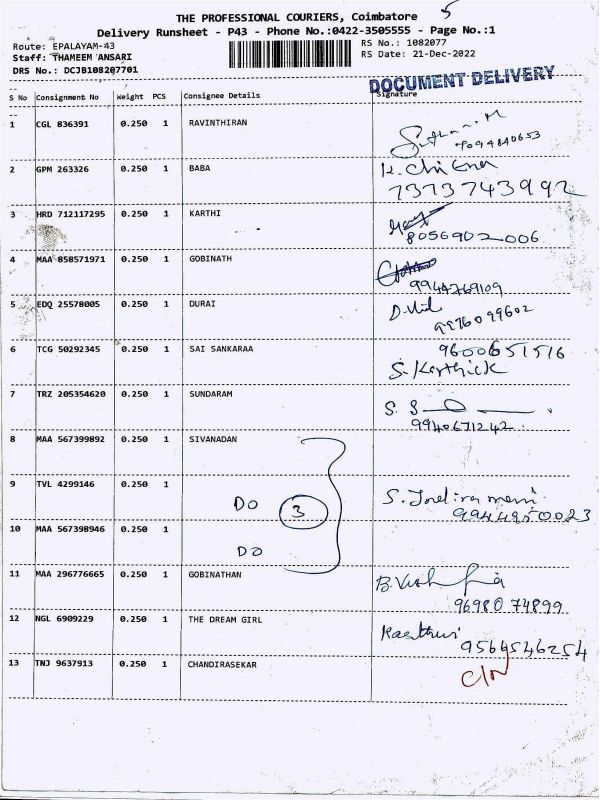 5
THE PROFESSIONAL COURIERS, Coimbatore
Delivery Runsheet - P43 - Phone No.:0422-3505555 - Page No.:1
Route: EPALAYAM-43
RS No.: 1082077
Staff: THAMEEM ANSARI
RS Date: 21-Dec-2022
DRS No.: DCJB108207701
DOCUMENT DELIVERY
S No Consignment No Weight PCS Consignee Details Signature
1 CGL 836391 0.250 1 RAVINTHIRAN
7094840653
2 GPM 263326 0.250 1 BABA
7373743992
3 HRD 712117295 0.250 1 KARTHI
8056902006
4 MAA 858571971 0.250 1 GOBINATH
9944769109
5 EDQ 25578005 0.250 1 DURAI
9976099602
6 TCG 50292345 0.250 1 SAI SANKARAA 9600651516
S. Karthick
7 TRZ 205354620 0.250 1 SUNDARAM
9940671242
8 MAA 567399892 0.250 1 SIVANADAN
9 TVL 4299146 0.250 1
DO 3 S. Indiramani
9944950023
10 MAA 567398946 0.250 1
DO
11 MAA 296776665 0.250 1 GOBINATHAN
9698074899
12 NGL 6909229 0.250 1 THE DREAM GIRL
9566546254
13 TNJ 9637913 0.250 1 CHANDIRASEKAR